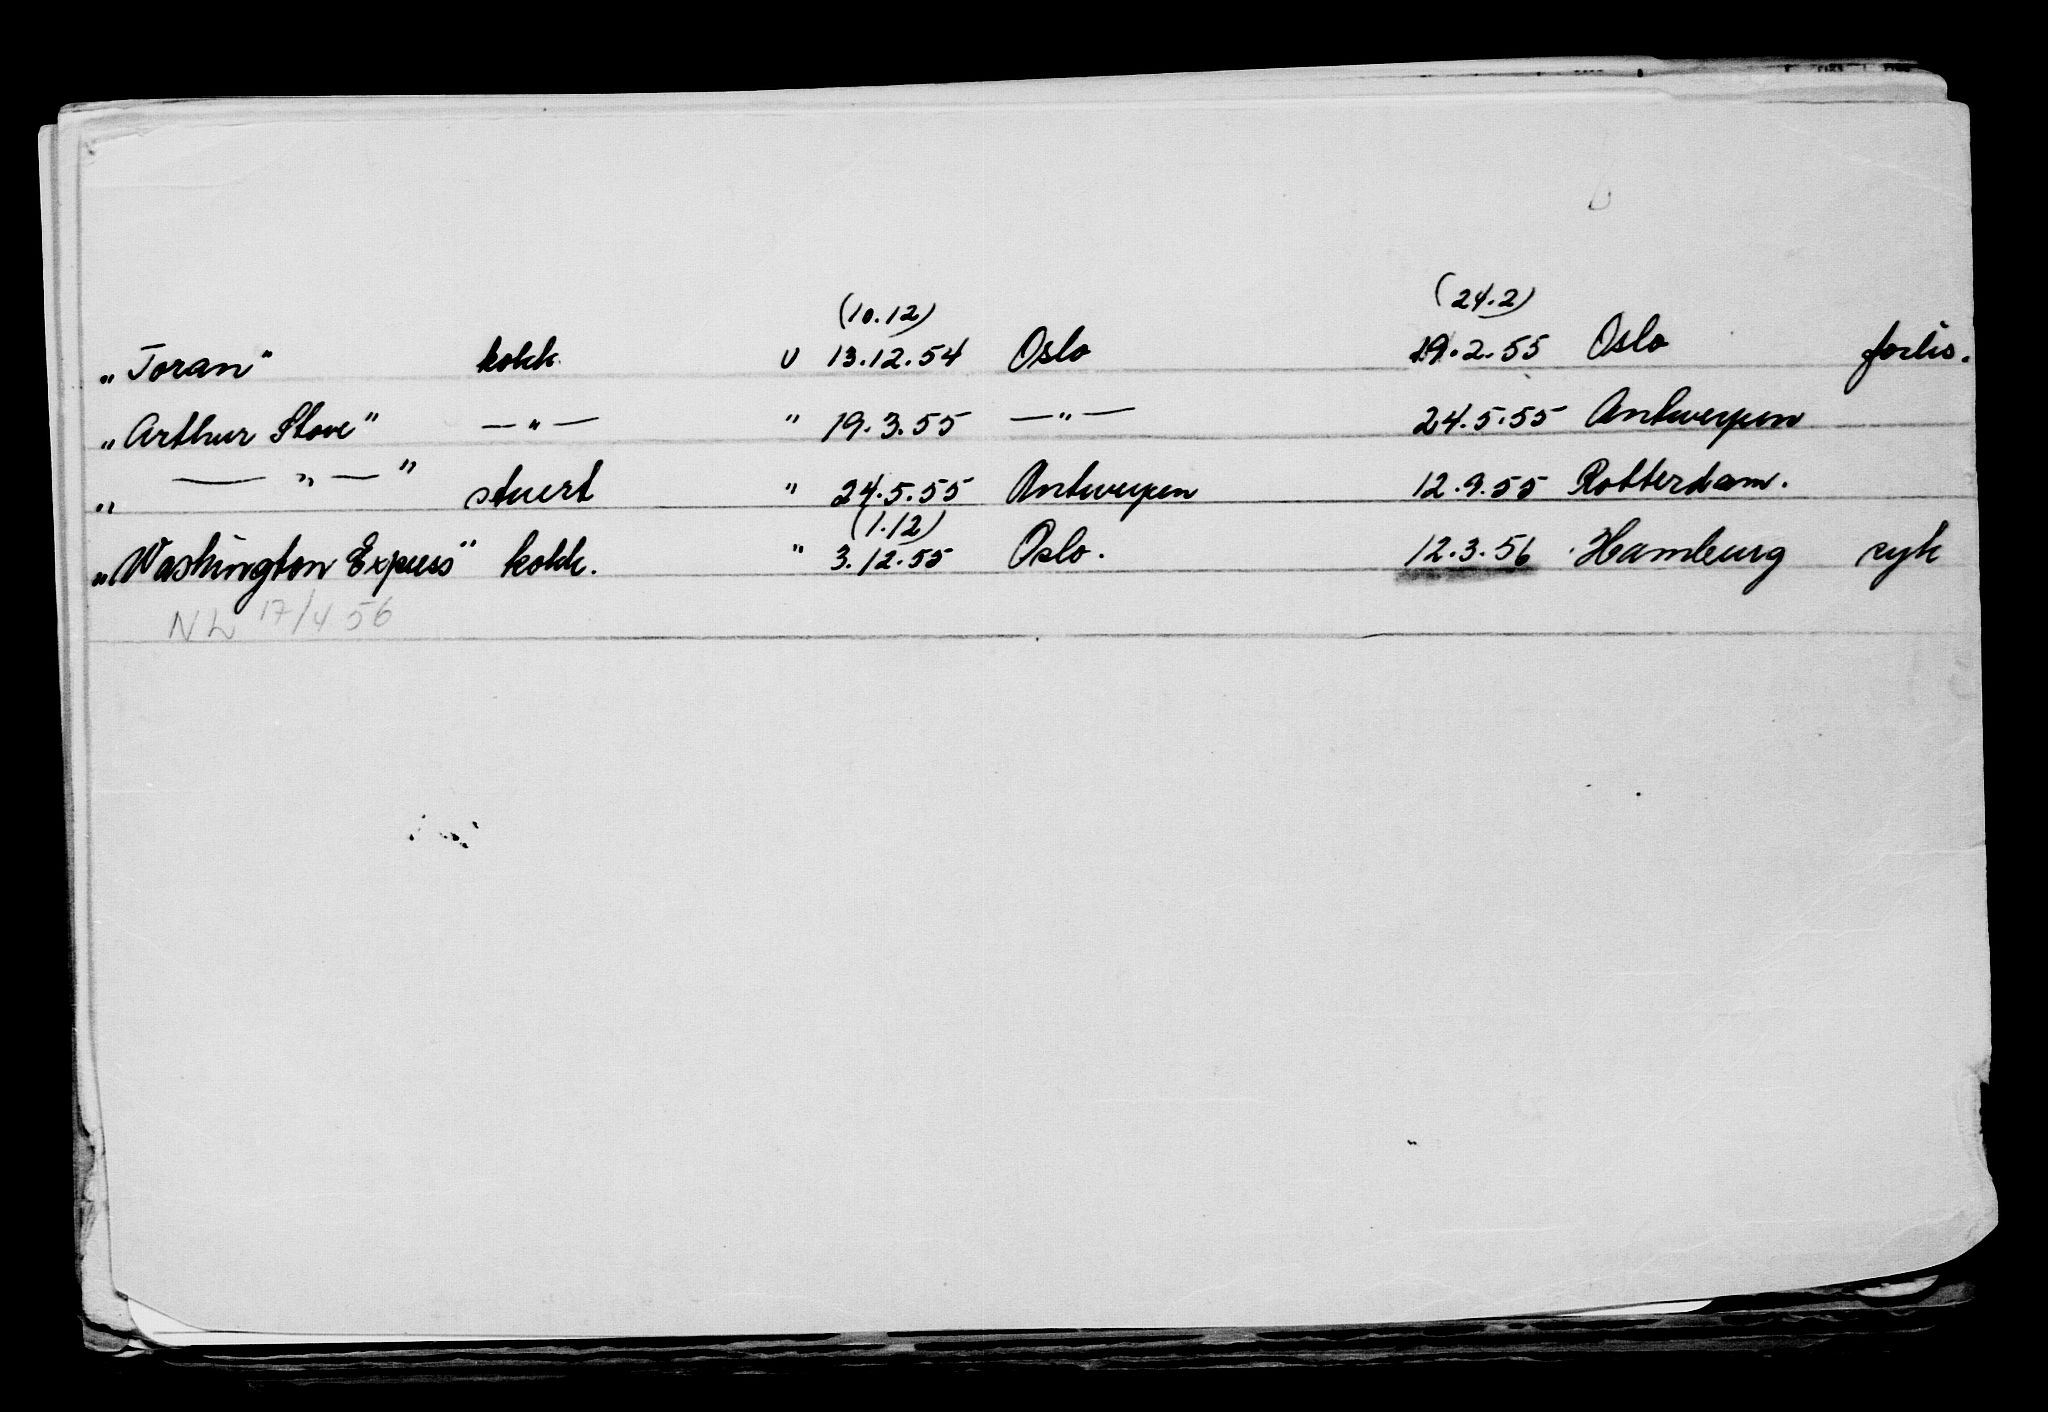 (10.12) (24.2)
„Toran" kokk. U 13.12.54 Oslo 19.2.55 Oslo forlis.
„Arthur Stove" — „ — " 19.3.55 — „ — 24.5.55 Antwerpen
„ — „ — " stuert " 24.5.55 Antwerpen 12.9.55 Rotterdam.
(1.12)
„Washington Express" kokk. " 3.12.55 Oslo. 12.3.56 Hamburg syk
17/4 56